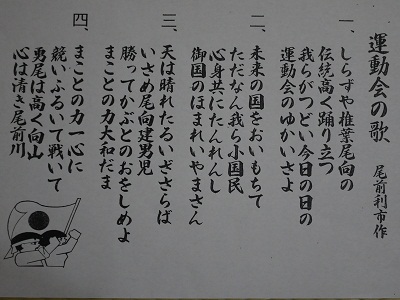 運動会の歌
尾前利市作
一、しらずや椎葉尾向の
伝統高く踊り立つ
我らがつどい今日の日の
運動会のゆかいさよ
二、未来の国をおいもちて
ただなん我ら小国民
心身共にたんれんし
御国のほまれいやまさん
三、天は晴れたるいざさらば
いさめ尾向建男児
勝ってかぶとのおをしめよ
まことの力大和だま
四、まことの力一心に
競いふるいて戦いて
勇尾は高く向山
心は清き尾前川